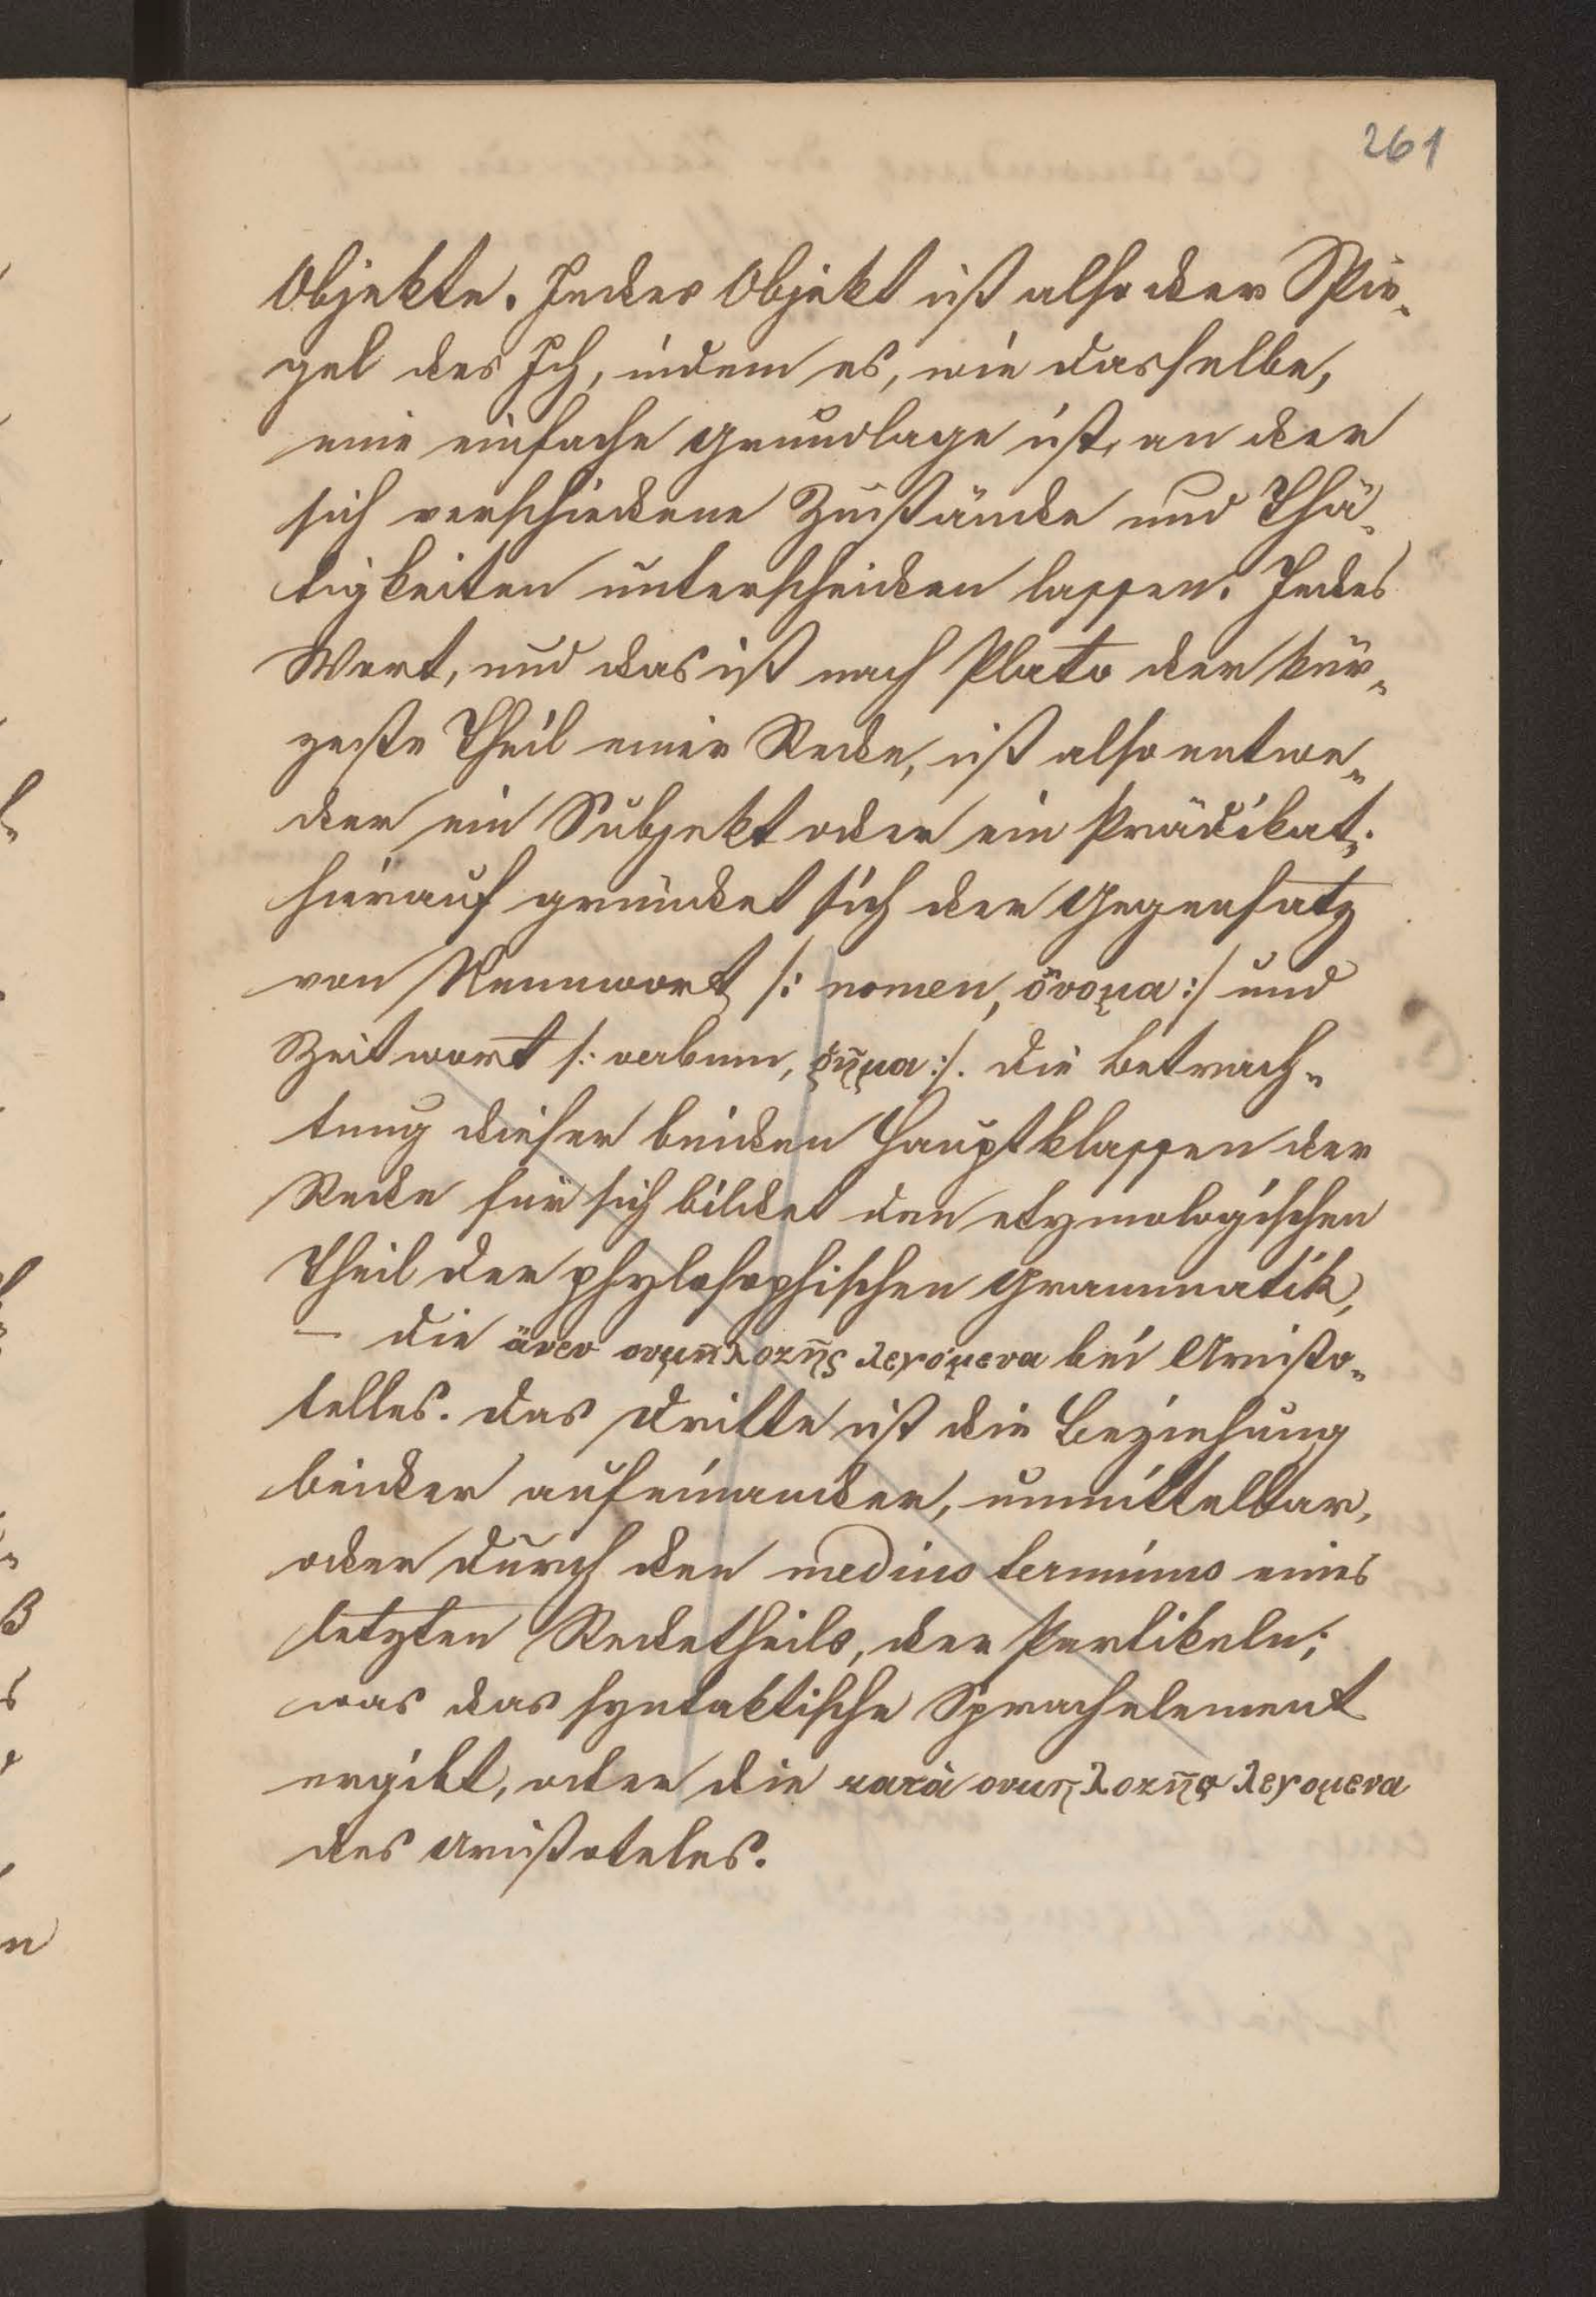 261
Objekte. Jedes Objekt ist also der Spie-
gel des Ich, indem es, wie dasselbe,
eine einfache Grundlage ist, an der
sich verschiedene Zustände und Thä-
tigkeiten unterscheiden lassen. Jedes
Wort, und das ist nach Plato der kür-
zeste Theil einer Rede, ist also entwe-
der ein Subjekt oder ein Prädikat;
hierauf gründet sich der Gegensatz
von Nennwort /: nomen, ὄνομα :/ und
Zeitwort /: verbum, ῥῆμα :/. Die Betrach-
tung dieser beiden Hauptklassen der
Rede für sich bildet den etymologischen
Theil der phylosophischen Grammatik,
— die ἄνευ συμπλοκῆς λεγόμενα bei Aristo-
telles. Das Dritte ist die Beziehung
beider aufeinander, unmittelbar,
oder durch den medius terminus eines
letzten Redetheils, der Partikeln;
was das syntaktische Sprachelement
ergibt, oder die κατὰ συμπλοκῆς λεγομενα
des Aristoteles.